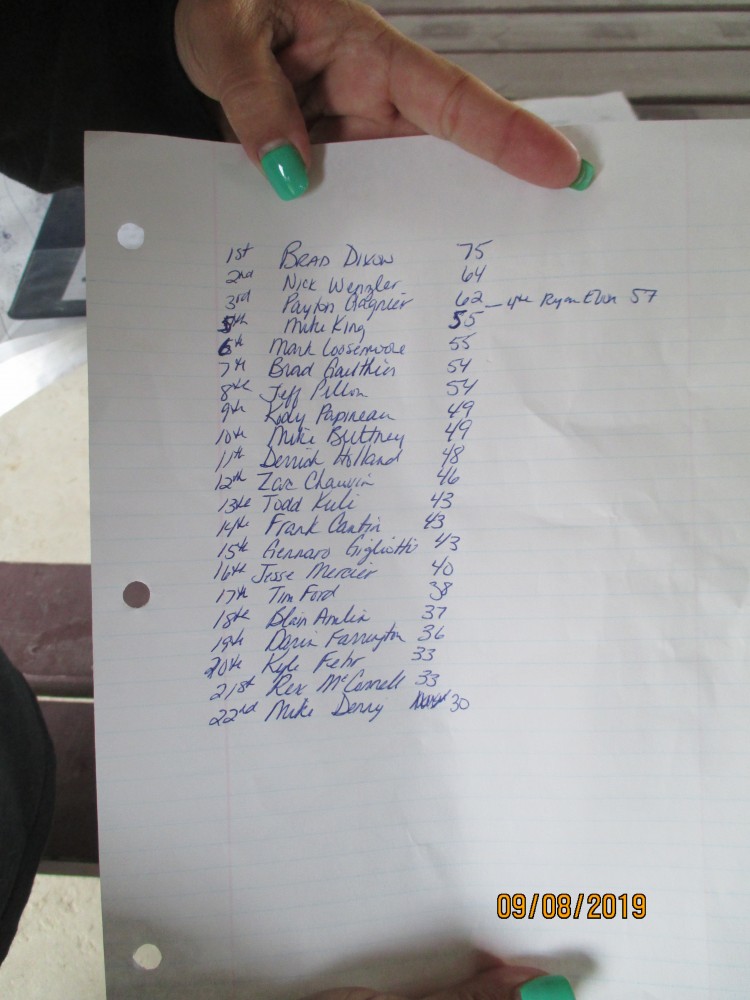 1st Brad Dixon 75
2nd Nick Wenzler 64
3rd Payton Gagnier 62 - 4th Ryan 57
5th Mike King 55
6th Mark Loosemore 55
7th Brad Gauthier 54
8th Jeff Pillon 54
9th Kody Papineau 49
10th Mike Buttney 49
11th Derrick Holland 48
12th Zac Chauvin 46
13th Todd Kuli 43
14th Frank Cantin 43
15th Gennaro Gigliotti 43
16th Jesse Mercier 40
17th Tim Ford 38
18th Blair Amlin 37
19th Darin Farrington 36
20th Kyle Fehr 33
21st Rex McConnell 33
22nd Mike Denny 30
09/08/2019